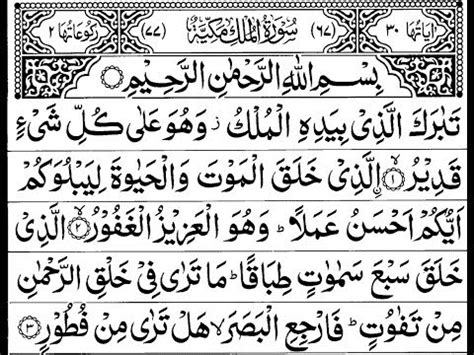 اٰيَاتُهَا ٣٠ (٦٧) سُوْرَةُ الْمُلْكِ مَكِّيَّةٌ (٧٧) رُكُوْعَاتُهَا ٢
بِسْمِ اللّٰهِ الرَّحْمٰنِ الرَّحِيْمِ
تَبٰرَكَ الَّذِىْ بِيَدِهِ الْمُلْكُ ز وَهُوَ عَلٰى كُلِّ شَىْءٍ
قَدِيْرُ ۙ﴿١﴾ اِلَّذِىْ خَلَقَ الْمَوْتَ وَالْحَيٰوةَ لِيَبْلُوَكُمْ
اَيُّكُمْ اَحْسَنُ عَمَلًا ؕ وَهُوَ الْعَزِيْزُ الْغَفُوْرُ ۙ﴿٢﴾ الَّذِىْ
خَلَقَ سَبْعَ سَمٰوٰتٍ طِبَاقًا ؕ مَا تَرٰى فِىْ خَلْقِ الرَّحْمٰنِ
مِنْ تَفٰوُتٍ ؕ فَارْجِعِ الْبَصَرَ ۙ هَلْ تَرٰى مِنْ فُطُوْرٍ ﴿٣﴾